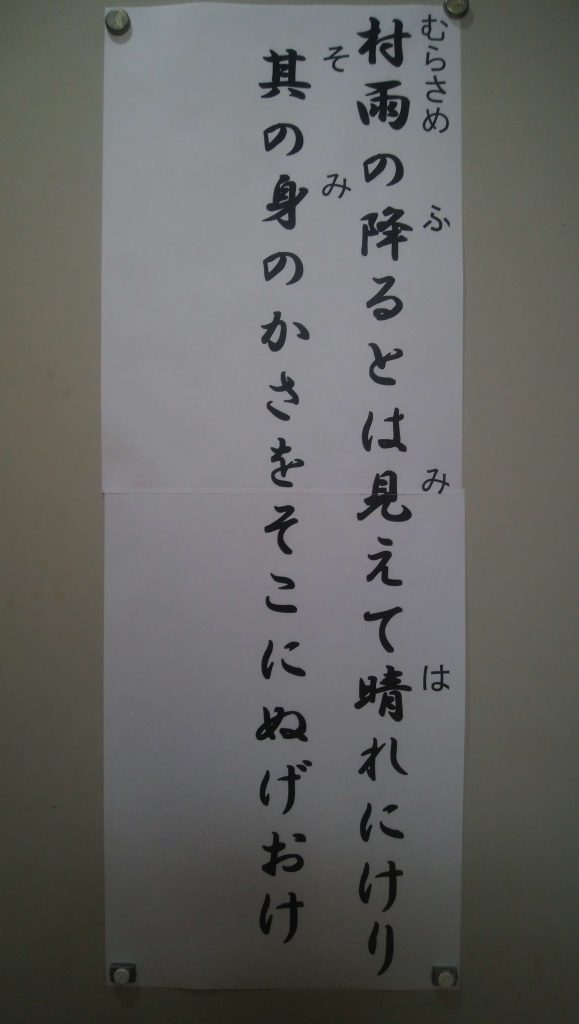 村雨の降るとは見えて晴れにけり
むらさめ ふ み は
其の身のかさをそこにぬげおけ
そ み